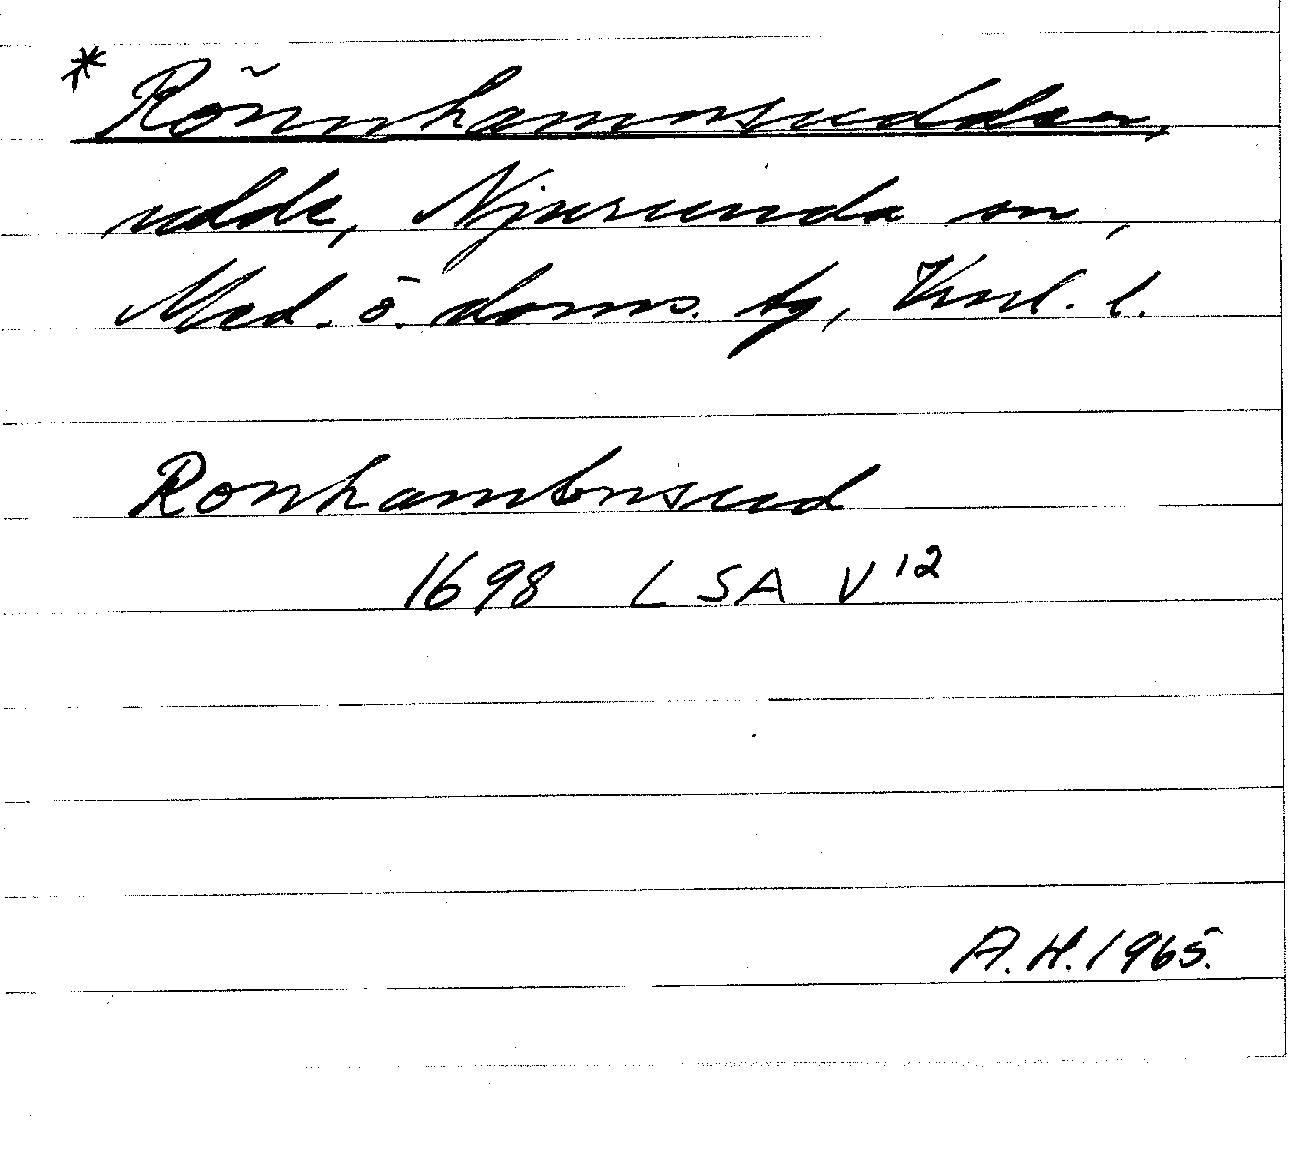 * Rönnhamnsudden,
udde, Njurunda sn,
Med. ö. doms. tg, Vnrl. l.
Ronhambnsud
1698 LSA V¹²
A.H. 1965.